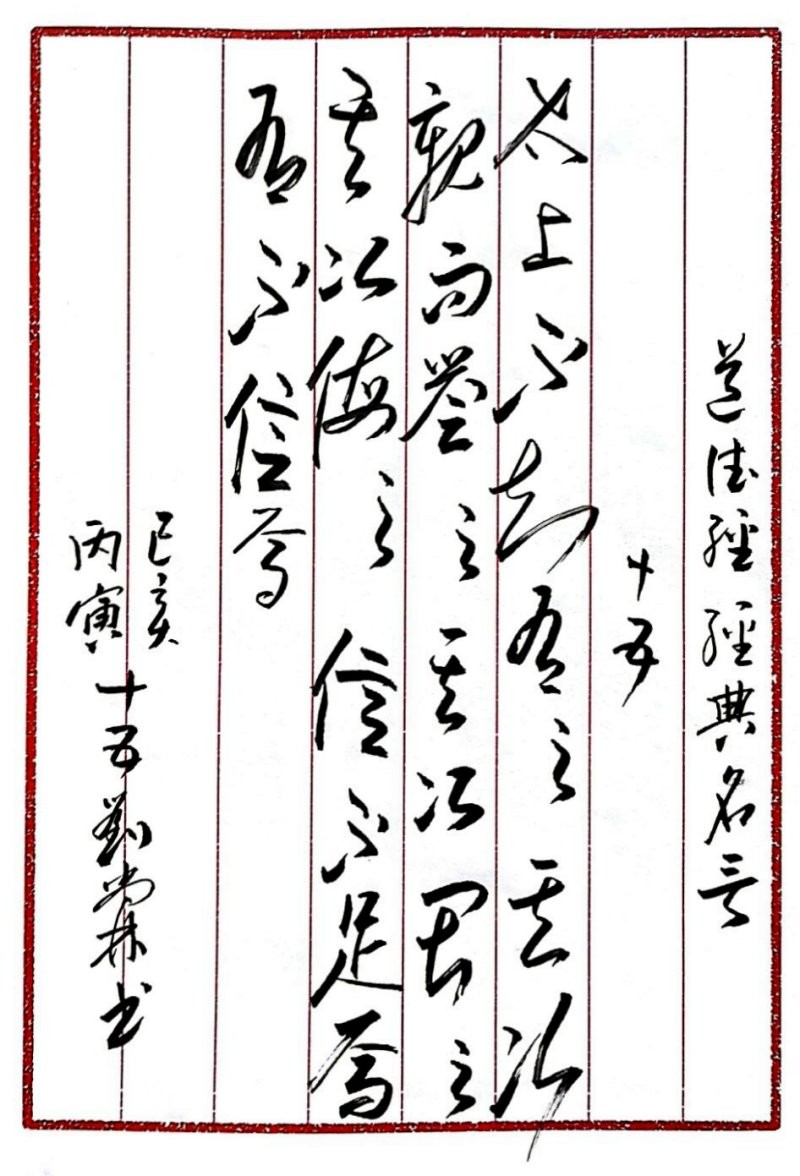 道德經經典名言
十五
太上不知有之其次
親而譽之其次畏之
其次侮之信不足焉
有不信焉
己亥
丙寅
十五劉尚林书